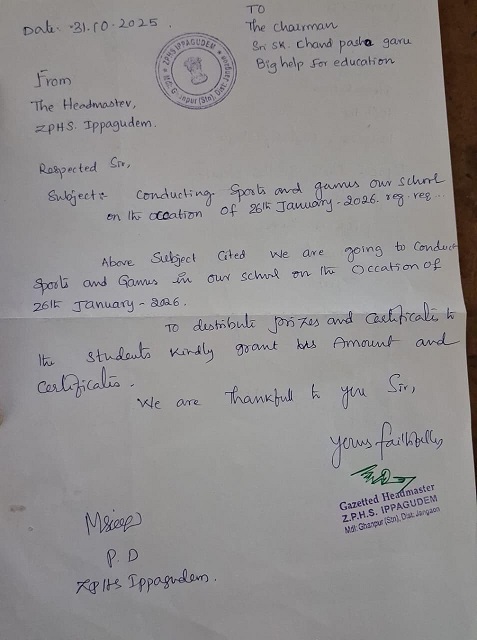 Date:- 31.10.2025.
TO
The chairman
Sri SK. Chand pasha garu
Big help for education
Z.P.H.S IPPAGUDEM
Mdl: Ghanpur (Stn), Dist: Jangaon
From
The Headmaster,
ZPHS. Ippagudem.
Respected Sir,
Subject:- Conducting Sports and games our school
on the occation of 26th January-2026. reg. reg...
Above Subject Cited We are going to Conduct
Sports and Games in our school on the Occation of
26th January-2026.
To distribute prizes and Certificates to
the students kindly grant us Amount and
Certificates.
We are thankfull to you Sir,
yours faithfully,
Gazetted Headmaster
Z.P.H.S. IPPAGUDEM
Mdl: Ghanpur (Stn), Dist: Jangaon
P.D
ZPHS Ippagudem.